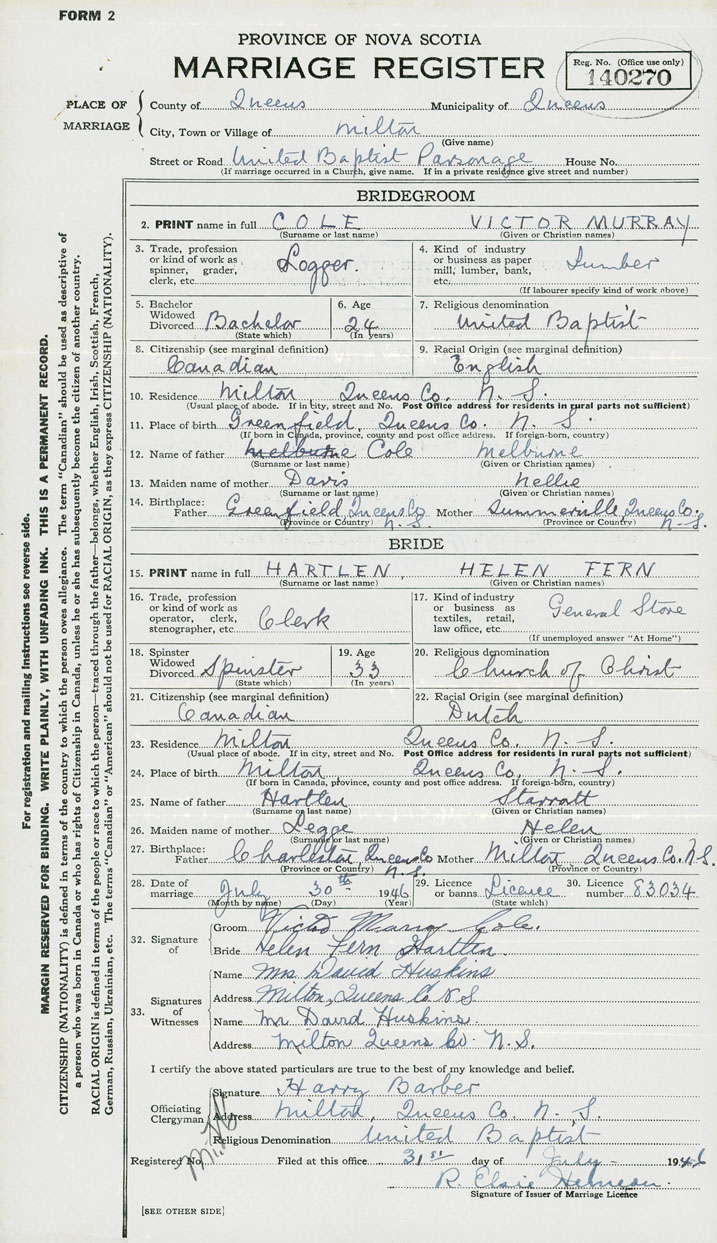 FORM 2
PROVINCE OF NOVA SCOTIA
MARRIAGE REGISTER
Reg. No. (Office use only)
140270
PLACE OF MARRIAGE
County of Queens Municipality of Queens
City, Town or Village of Milton
(Give name)
Street or Road United Baptist Parsonage House No.
(If marriage occurred in a Church, give name. If in a private residence give street and number)
BRIDEGROOM
2. PRINT name in full COLE VICTOR MURRAY
(Surname or last name) (Given or Christian names)
3. Trade, profession or kind of work as spinner, grader, clerk, etc. Logger.
4. Kind of industry or business as paper mill, lumber, bank, etc. Lumber
(If labourer specify kind of work above)
5. Bachelor Widowed Divorced Bachelor
(State which)
6. Age 24
(In years)
7. Religious denomination
United Baptist
8. Citizenship (see marginal definition)
Canadian
9. Racial Origin (see marginal definition)
English
10. Residence Milton, Queens Co. N. S.
(Usual place of abode. If in city, street and No. Post Office address for residents in rural parts not sufficient)
11. Place of birth Greenfield, Queens Co. N. S.
(If born in Canada, province, county and post office address. If foreign-born, country)
12. Name of father Melburne Cole Melburne
(Surname or last name) (Given or Christian names)
13. Maiden name of mother Davis Nellie
(Surname or last name) (Given or Christian names)
14. Birthplace: Father Greenfield, Queens Co. N.S. Mother Summerville, Queens Co. N-S.
(Province or Country) (Province or Country)
BRIDE
15. PRINT name in full HARTLEN, HELEN FERN
(Surname or last name) (Given or Christian names)
16. Trade, profession or kind of work as operator, clerk, stenographer, etc. Clerk
17. Kind of industry or business as textiles, retail, law office, etc. General Store
(If unemployed answer "At Home")
18. Spinster Widowed Divorced Spinster
(State which)
19. Age 33
(In years)
20. Religious denomination
Church of Christ
21. Citizenship (see marginal definition)
Canadian
22. Racial Origin (see marginal definition)
Dutch
23. Residence Milton Queens Co. N. S.
(Usual place of abode. If in city, street and No. Post Office address for residents in rural parts not sufficient)
24. Place of birth Milton Queens Co. N. S.
(If born in Canada, province, county and post office address. If foreign-born, country)
25. Name of father Hartlen Starratt
(Surname or last name) (Given or Christian names)
26. Maiden name of mother Legge Helen
(Surname or last name) (Given or Christian names)
27. Birthplace: Father Charleston, Queens Co N.S. Mother Milton Queens Co. N.S.
(Province or Country) (Province or Country)
28. Date of marriage July 30th 1946
(Month by name) (Day) (Year)
29. Licence or banns Licence
(State which)
30. Licence number 83034
32. Signature of
Groom Victor Murray Cole.
Bride Helen Fern Hartlen.
33. Signatures of Witnesses
Name Mrs David Huskins
Address Milton, Queens Co N S
Name Mr David Huskins.
Address Milton Queens Co. N.S.
I certify the above stated particulars are true to the best of my knowledge and belief.
Officiating Clergyman
Signature Harry Barber
Address Milton, Queens Co. N. S.
Religious Denomination United Baptist
Registered No. Filed at this office 31st day of July 1946
R. Elsie
Signature of Issuer of Marriage Licence
[SEE OTHER SIDE]
For registration and mailing instructions see reverse side.
MARGIN RESERVED FOR BINDING. WRITE PLAINLY, WITH UNFADING INK. THIS IS A PERMANENT RECORD.
CITIZENSHIP (NATIONALITY) is defined in terms of the country to which the person owes allegiance. The term "Canadian" should be used as descriptive of
a person who was born in Canada or who has rights of Citizenship in Canada, unless he or she has subsequently become the citizen of another country.
RACIAL ORIGIN is defined in terms of the people or race to which the person—traced through the father—belongs, whether English, Irish, Scottish, French,
German, Russian, Ukrainian, etc. The terms "Canadian" or "American" should not be used for RACIAL ORIGIN, as they express CITIZENSHIP (NATIONALITY).